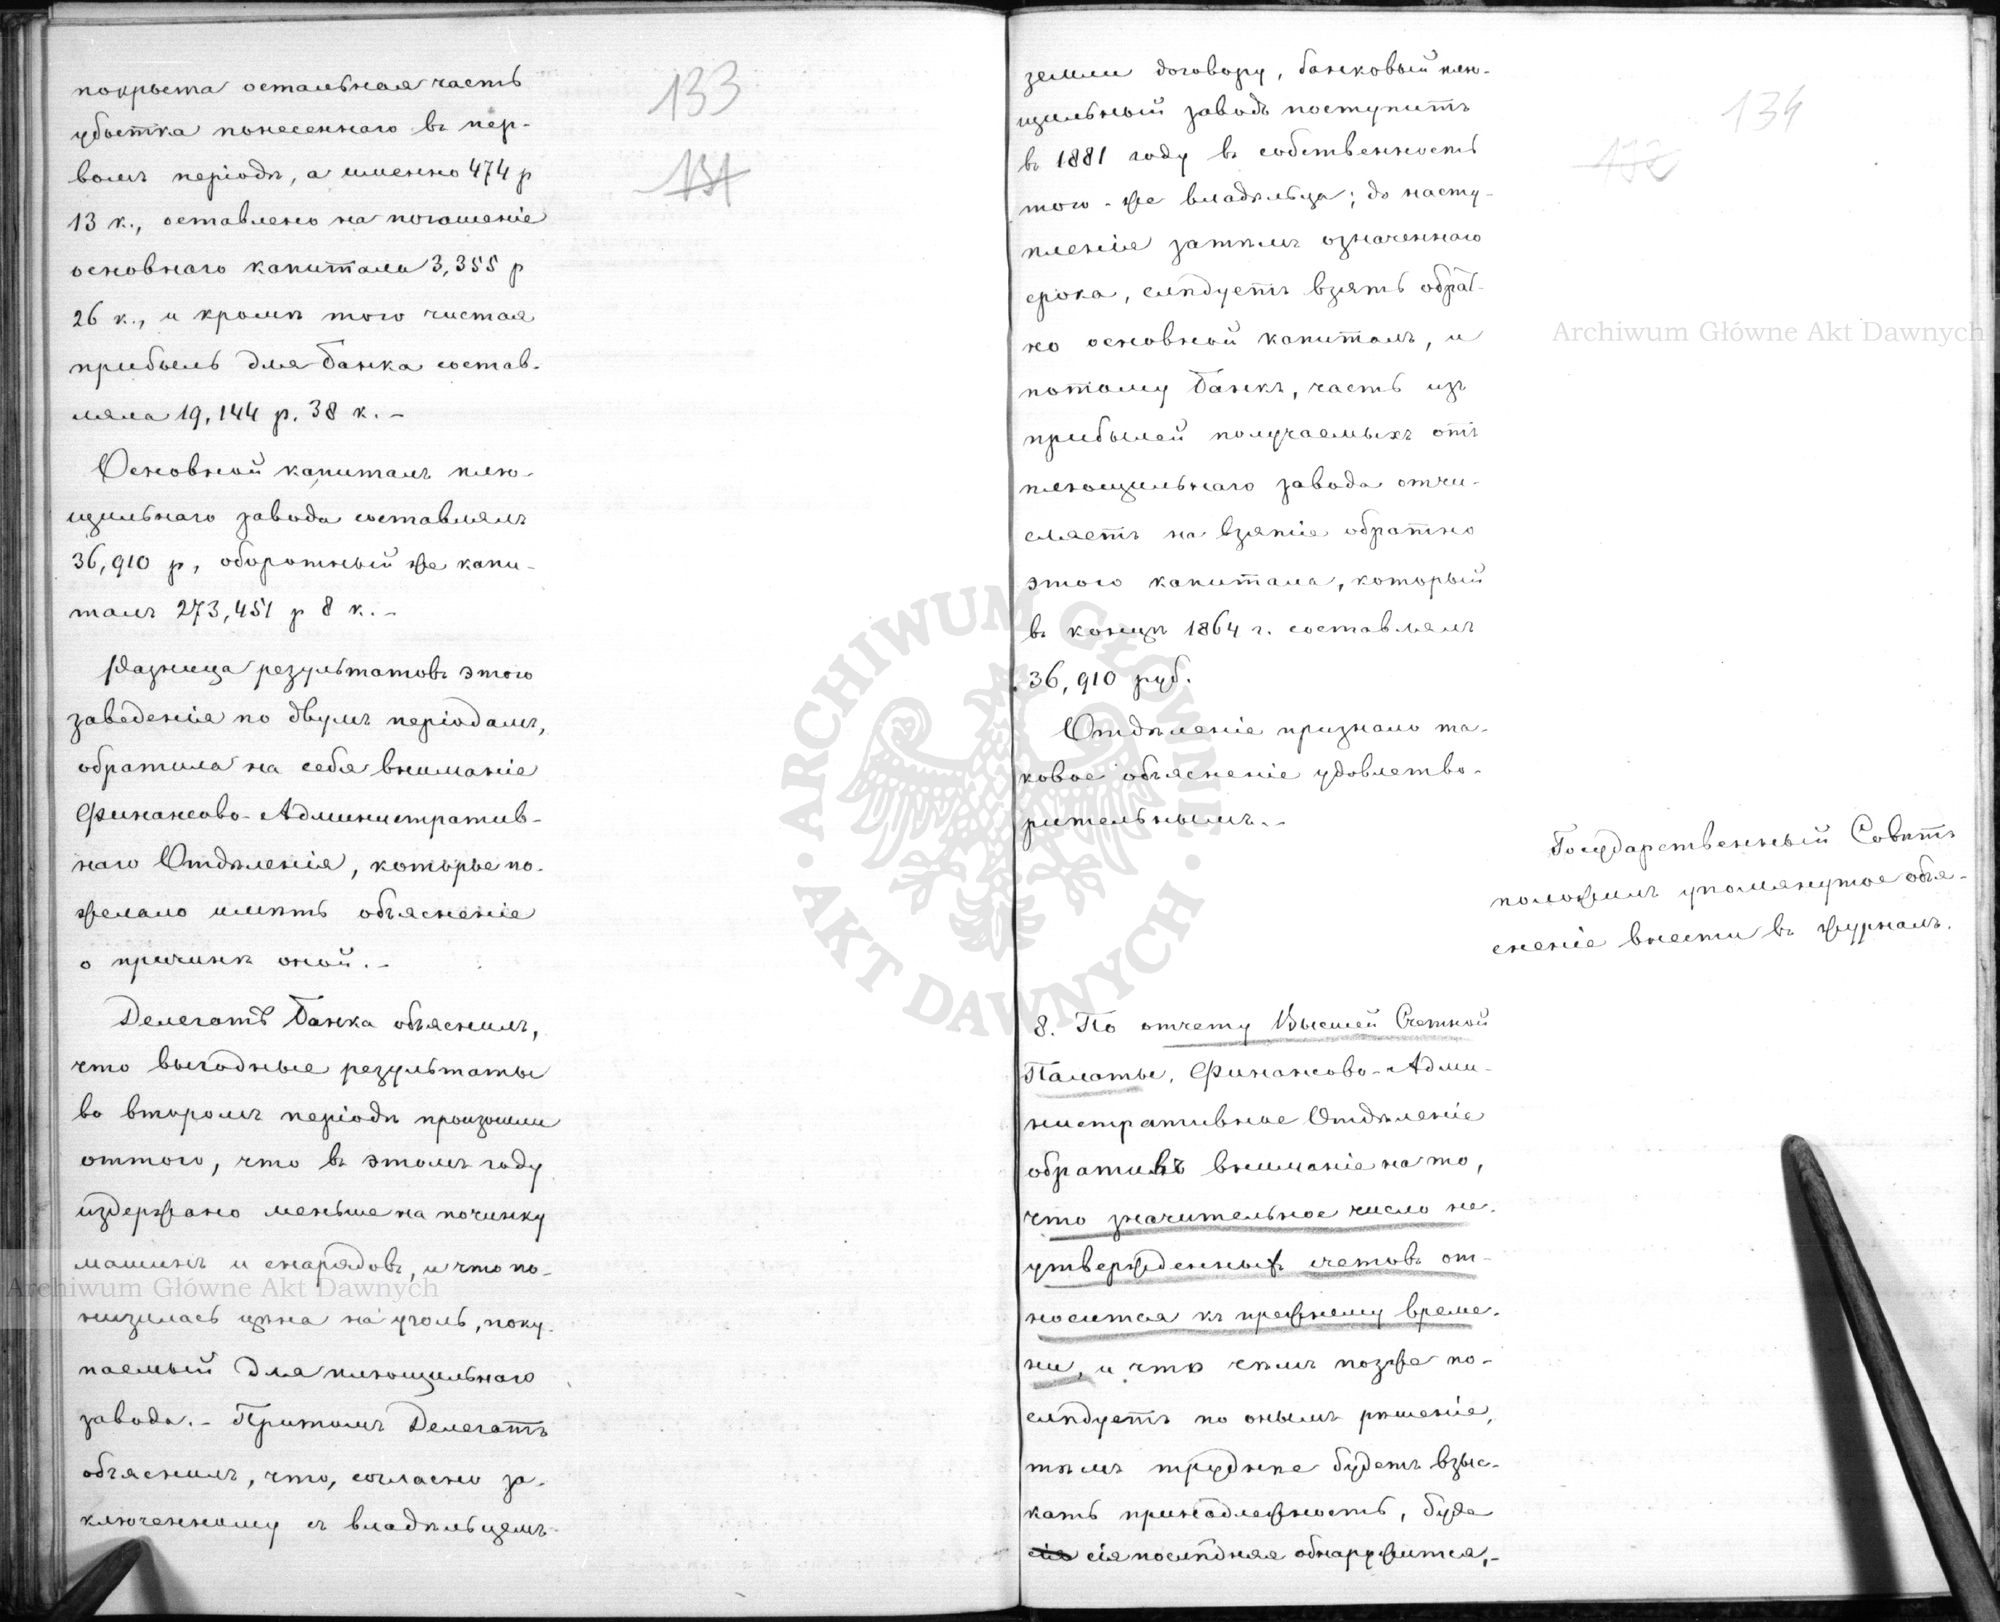 133
131
покрыта остальная часть
убытка понесеннаго въ пер-
вомъ періодѣ, а именно 474 р
13 к., оставлено на погашеніе
основнаго капитала 3,355 р
26 к., и кромѣ того чистая
прибыль для Банка состав-
ляла 19,144 р. 38 к. –
Основной капиталъ плю-
щильнаго завода составлялъ
36,910 р, оборотный же капи-
талъ 273,451 р 8 к. –
Разница результатовъ этого
заведенія по двумъ періодамъ,
обратила на себя вниманіе
Финансово-Административ-
наго Отдѣленія, которые по-
желало имѣть объясненіе
о причинѣ оной. –
Делегатъ Банка объяснилъ,
что выгодные результаты
во второмъ періодѣ произошли
оттого, что въ этомъ году
издержано меньше на починку
машинъ и снарядовъ, и что по-
низилась цѣна на уголь, поку-
паемый для плющильнаго
завода. – Притомъ Делегатъ
объяснилъ, что, согласно за-
ключенному съ владѣльцемъ
134
132
земли договору, банковый плю-
щильный заводъ поступитъ
въ 1881 году въ собственность
того-же владѣльца; до насту-
пленія затѣмъ означеннаго
срока, слѣдуетъ взять обрат-
но основной капиталъ, и
потому Банкъ, часть изъ
прибылей получаемыхъ отъ
плющильнаго завода отчи-
сляетъ на взятіе обратно
этого капитала, который
въ концѣ 1864 г. составлялъ
36,910 руб.
Отдѣленіе признало та-
ковое объясненіе удовлетво-
рительнымъ. –
Государственный Совѣтъ
положилъ упомянутое объя-
сненіе внести въ журналъ.
8. По отчету Высшей Счетной
Палаты, Финансово-Адми-
нистративное Отдѣленіе
обративъ вниманіе на то,
что значительное число не-
утвержденныхъ счетовъ от-
носится къ прежнему време-
ни, и что чѣмъ позже по-
слѣдуетъ по онымъ рѣшеніе,
тѣмъ труднѣе будетъ взыс-
кать принадлежность, буде
сія сія послѣдняя обнаружится, –
Archiwum Główne Akt Dawnych
Archiwum Główne Akt Dawnych
ARCHIWUM GŁÓWNE AKT DAWNYCH